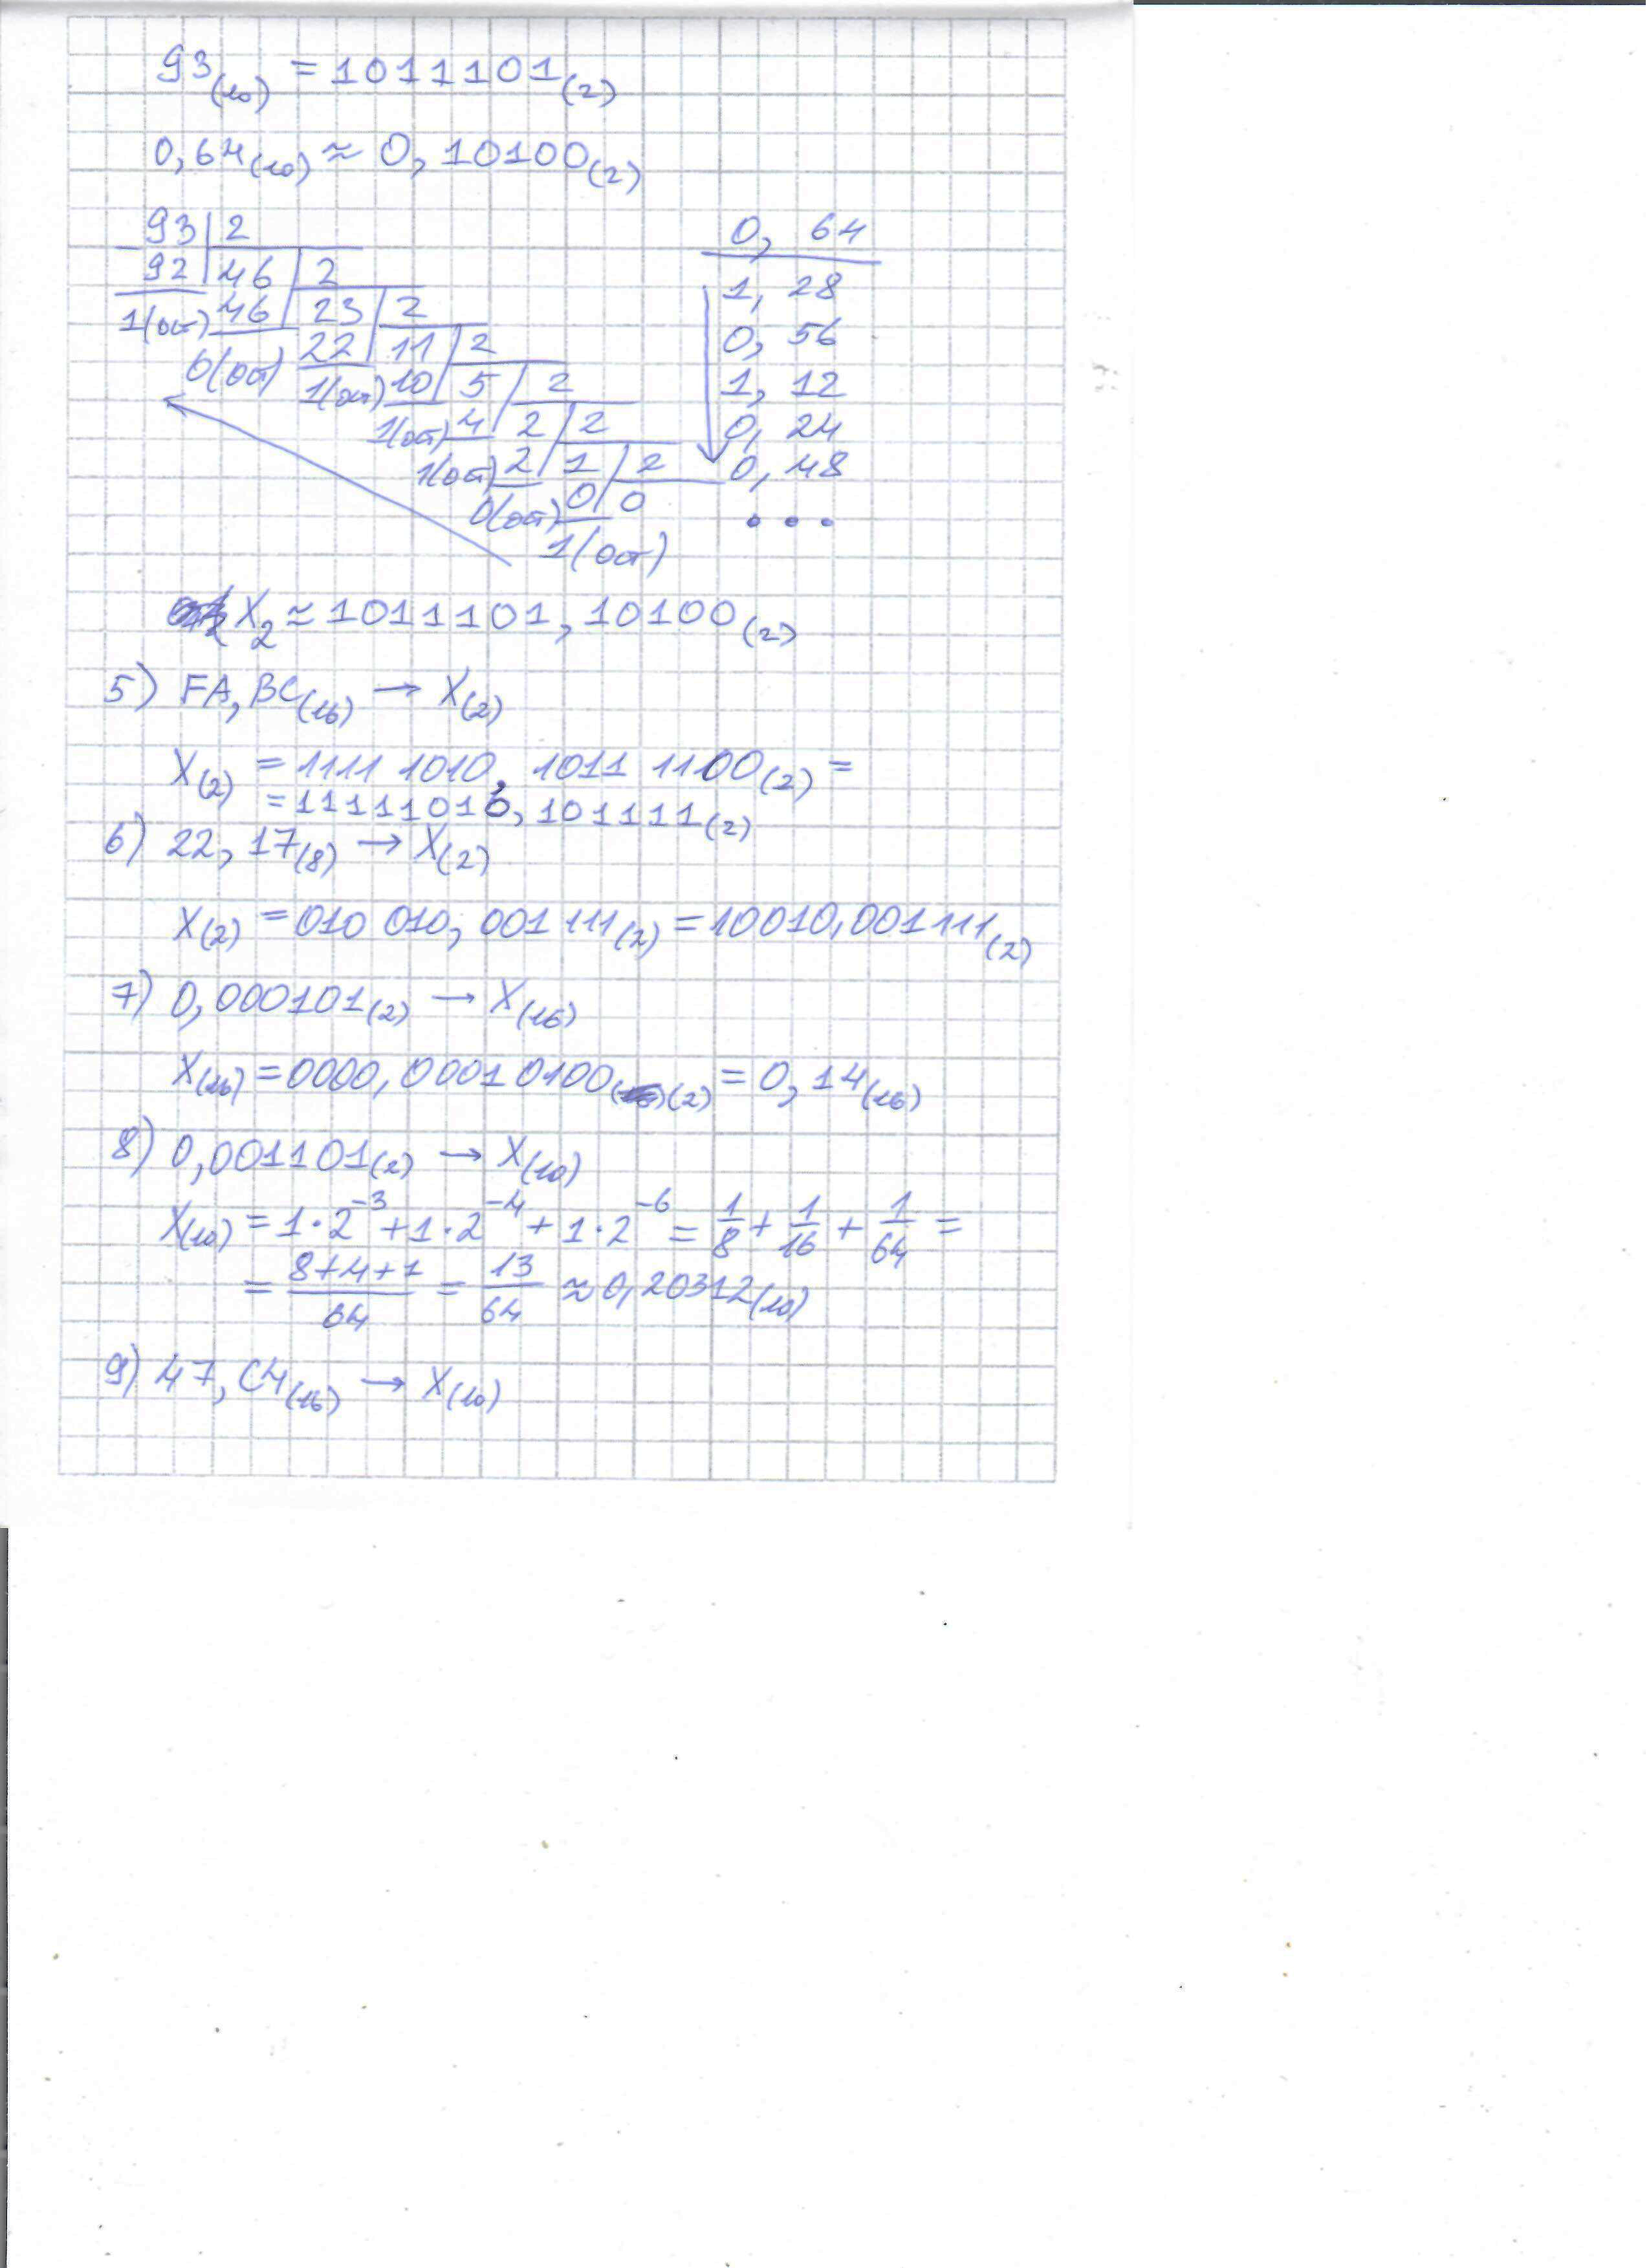 93(10) = 1011101(2)
0,64(10) ≈ 0,10100(2)
93 2
92 46 2
1(ост) 46 23 2
0(ост) 22 11 2
1(ост) 10 5 2
1(ост) 4 2 2
1(ост) 2 1 2
0(ост) 0 0
1(ост)
0, 64
1, 28
0, 56
1, 12
0, 24
0, 48
...
X2 ≈ 1011101,10100(2)
5) FA,BC(16) → X(2)
X(2) = 1111 1010, 1011 1100(2) =
= 11111010,101111(2)
6) 22,17(8) → X(2)
X(2) = 010 010, 001 111(2) = 10010,001111(2)
7) 0,000101(2) → X(16)
X(16) = 0000,0001 0100(2) = 0,14(16)
8) 0,001101(2) → X(10)
X(10) = 1·2⁻³ + 1·2⁻⁴ + 1·2⁻⁶ = 1/8 + 1/16 + 1/64 =
= (8+4+1)/64 = 13/64 ≈ 0,20312(10)
9) 47,C4(16) → X(10)